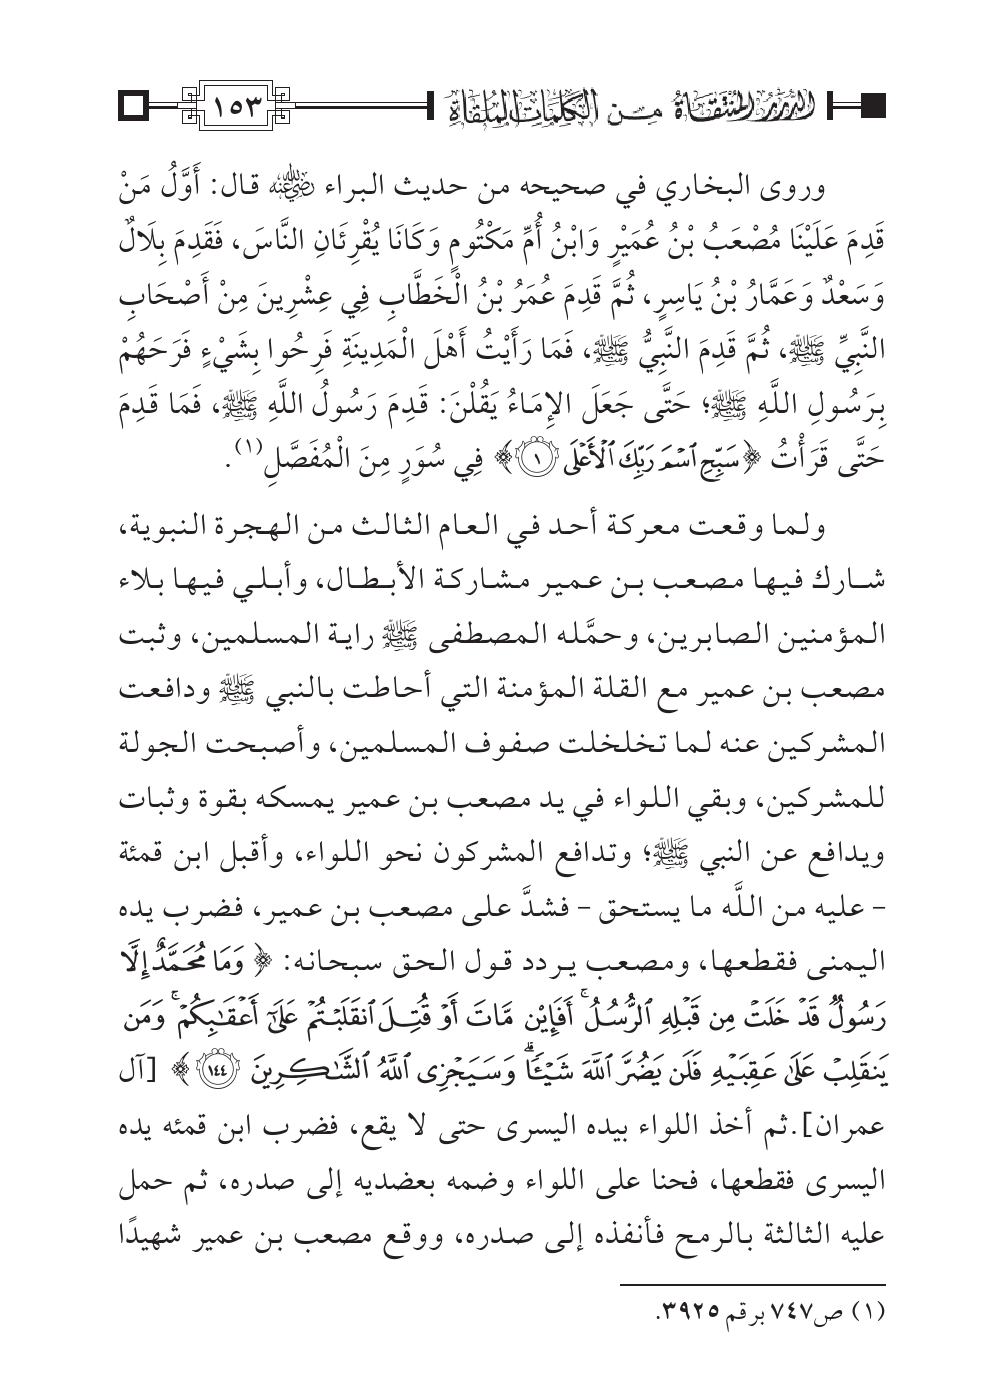 الدرر المنتقاة من الكلمات الملقاة ١٥٣
وروى البخاري في صحيحه من حديث البراء رضي الله عنه قال: أَوَّلُ مَنْ
قَدِمَ عَلَيْنَا مُصْعَبُ بْنُ عُمَيْرٍ وَابْنُ أُمِّ مَكْتُومٍ وَكَانَا يُقْرِئَانِ النَّاسَ، فَقَدِمَ بِلَالٌ
وَسَعْدٌ وَعَمَّارُ بْنُ يَاسِرٍ، ثُمَّ قَدِمَ عُمَرُ بْنُ الْخَطَّابِ فِي عِشْرِينَ مِنْ أَصْحَابِ
النَّبِيِّ ﷺ، ثُمَّ قَدِمَ النَّبِيُّ ﷺ، فَمَا رَأَيْتُ أَهْلَ الْمَدِينَةِ فَرِحُوا بِشَيْءٍ فَرَحَهُمْ
بِرَسُولِ اللَّهِ ﷺ؛ حَتَّى جَعَلَ الإِمَاءُ يَقُلْنَ: قَدِمَ رَسُولُ اللَّهِ ﷺ، فَمَا قَدِمَ
حَتَّى قَرَأْتُ ﴿سَبِّحِ ٱسْمَ رَبِّكَ ٱلْأَعْلَى ١﴾ فِي سُوَرٍ مِنَ الْمُفَصَّلِ(١).
ولما وقعت معركة أحد في العام الثالث من الهجرة النبوية،
شارك فيها مصعب بن عمير مشاركة الأبطال، وأبلي فيها بلاء
المؤمنين الصابرين، وحمَّله المصطفى ﷺ راية المسلمين، وثبت
مصعب بن عمير مع القلة المؤمنة التي أحاطت بالنبي ﷺ ودافعت
المشركين عنه لما تخلخلت صفوف المسلمين، وأصبحت الجولة
للمشركين، وبقي اللواء في يد مصعب بن عمير يمسكه بقوة وثبات
ويدافع عن النبي ﷺ؛ وتدافع المشركون نحو اللواء، وأقبل ابن قمئة
– عليه من اللَّه ما يستحق – فشدَّ على مصعب بن عمير، فضرب يده
اليمنى فقطعها، ومصعب يردد قول الحق سبحانه: ﴿وَمَا مُحَمَّدٌ إِلَّا
رَسُولٌ قَدْ خَلَتْ مِن قَبْلِهِ ٱلرُّسُلُ ۚ أَفَإِيْن مَّاتَ أَوْ قُتِلَ ٱنقَلَبْتُمْ عَلَىٰٓ أَعْقَـٰبِكُمْ ۚ وَمَن
يَنقَلِبْ عَلَىٰ عَقِبَيْهِ فَلَن يَضُرَّ ٱللَّهَ شَيْـًٔا ۗ وَسَيَجْزِى ٱللَّهُ ٱلشَّـٰكِرِينَ ١٤٤﴾ [آل
عمران].ثم أخذ اللواء بيده اليسرى حتى لا يقع، فضرب ابن قمئه يده
اليسرى فقطعها، فحنا على اللواء وضمه بعضديه إلى صدره، ثم حمل
عليه الثالثة بالرمح فأنفذه إلى صدره، ووقع مصعب بن عمير شهيدًا
(١) ص٧٤٧ برقم ٣٩٢٥.